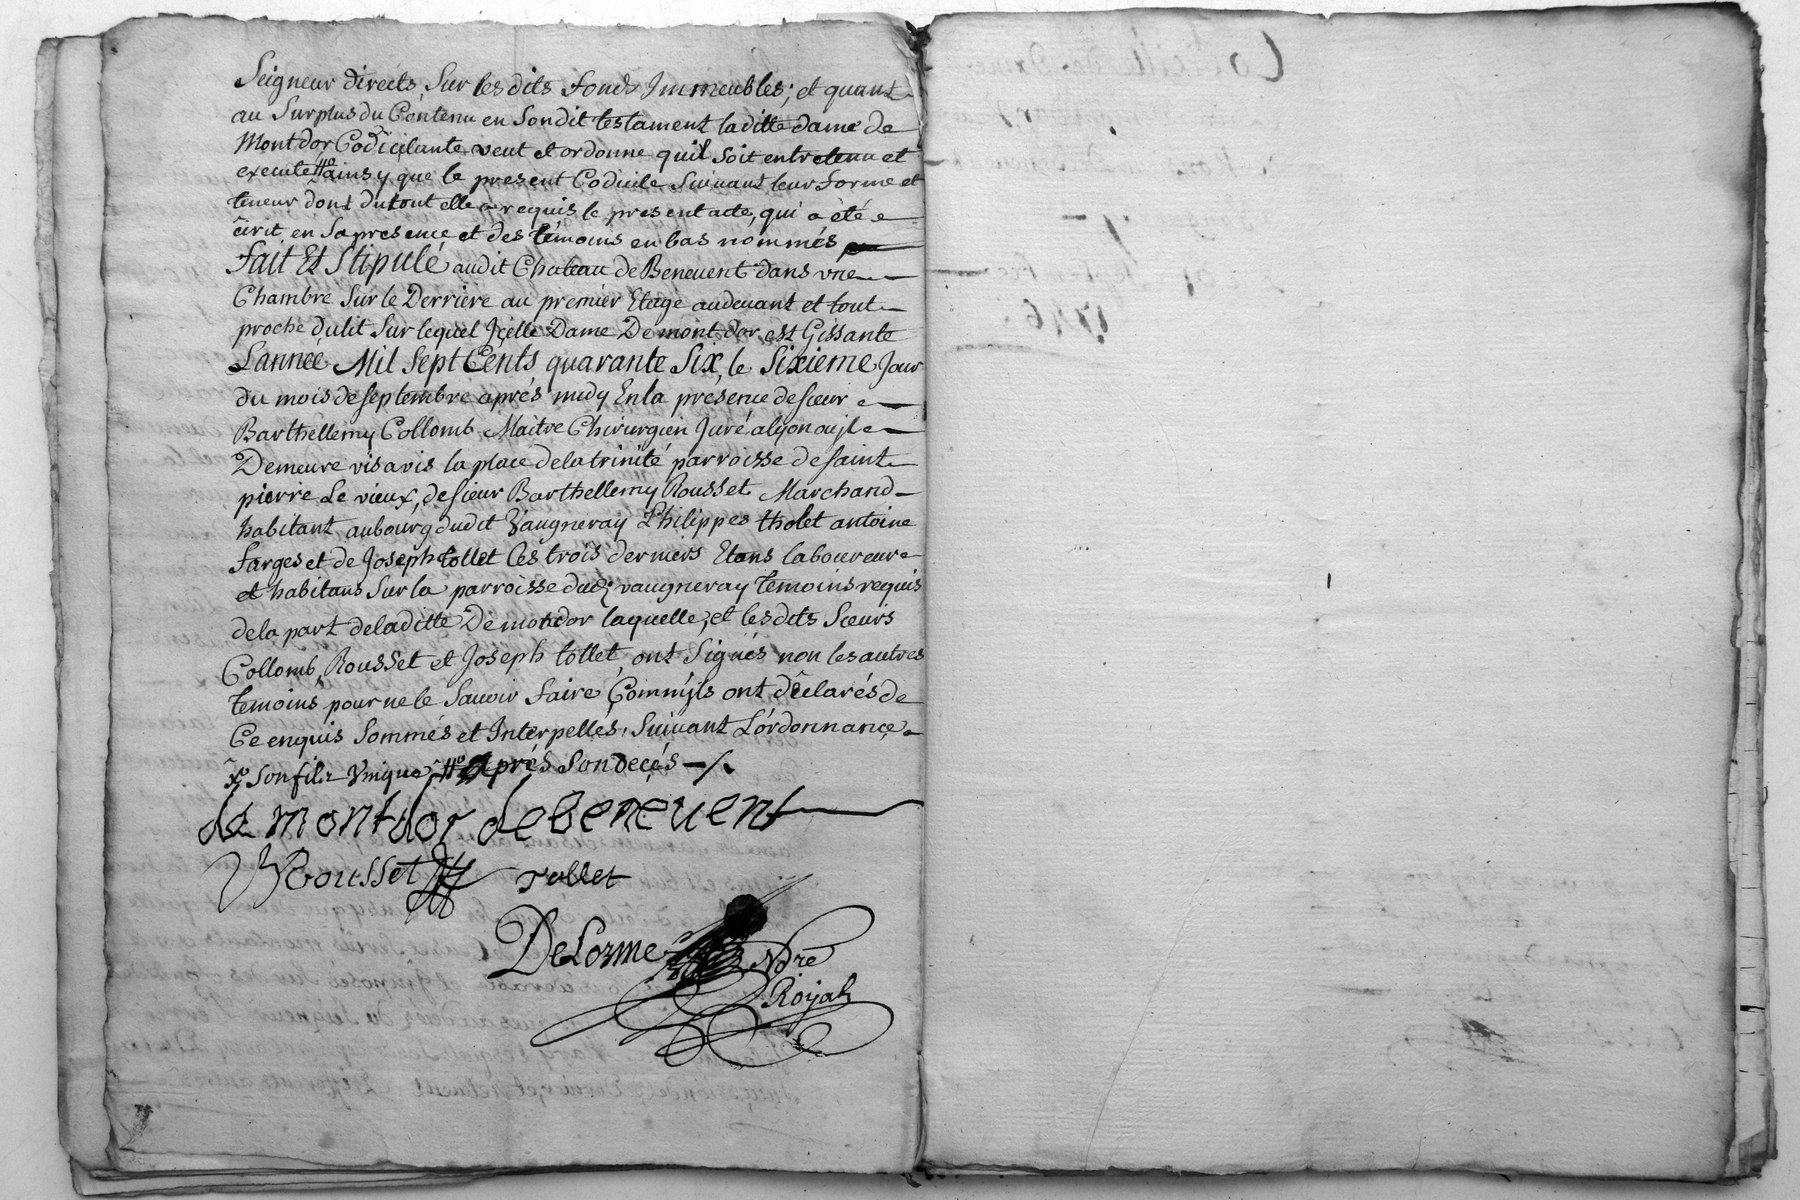 Seigneur directs, Sur les dits fonds Immeubles; et quant
au Surplus du Contenu en Sondit testament laditte dame de
Montdor Codicilante veut et ordonne quil soit entretenu et
execute ainsy que le present Codicile Suivant leur forme et
teneur dont dutout elle a requis le present acte, qui a été
ècrit en Sa presence et des témoins en bas nommés
fait Et Stipulé audit Chateau de Benevent dans vne
Chambre Sur le Derriere au premier Etage audevant et tout
proche du lit Sur lequel Jcelle Dame De mont dor est Gissante
Lannee Mil Sept Cents quarante Six, le Sixieme Jour
du mois de septembre aprés midy En la présence de sieur
Barthellemy Collomb Maitre Chirurgien Juré a lyon ou jl
Demeure vis a vis la place de la trinité parroisse de saint
pierre Le vieux, de sieur Barthellemy Rousset Marchand
habitant au bourg dudit Vaugneray Philippes tholet antoine
farges et de Joseph tollet Ces trois derniers Etans laboureur
et habitans Sur la parroisse dud; vaugneray Temoins requis
de la part de laditte De montdor laquelle, et les dits Sieurs
Collomb, Rousset et Joseph tollet, ont Signés non les autres
temoins pour ne le Savoir faire Comm'jls ont déclarés de
Ce enquis Sommés et Interpellés, Suivant L'ordonnance
Son fils Vnique Aprés Son decés
de montdor debenevent
BRousset tollet
DeLorme Nore
Royal
Codicille de Dame
6
7bre
1746